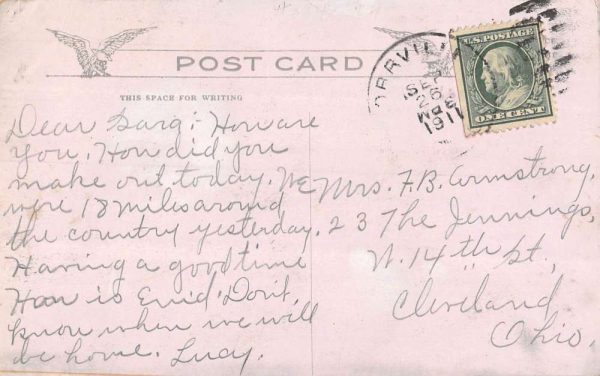 POST CARD
THIS SPACE FOR WRITING
U.S. POSTAGE
ONE CENT
ORRVILLE
SEP
26
1911
Dear Garg:- How are
you. How did you
make out today. We
were 18 miles around
the country yesterday.
Having a good time
How is Enid. Don't
know when we will
be home. Lucy.
Mrs. F.B. Armstrong,
23 The Jennings,
W. 14th St,
Cleveland
Ohio.